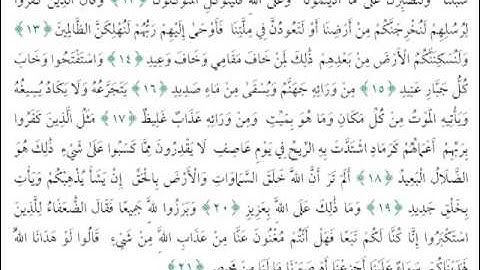 سُبُلَنَا وَلَنَصْبِرَنَّ عَلَى مَا آذَيْتُمُونَا وَعَلَى اللَّهِ فَلْيَتَوَكَّلِ الْمُتَوَكِّلُونَ ﴿١٢﴾ وَقَالَ الَّذِينَ كَفَرُوا
لِرُسُلِهِمْ لَنُخْرِجَنَّكُمْ مِنْ أَرْضِنَا أَوْ لَتَعُودُنَّ فِي مِلَّتِنَا فَأَوْحَى إِلَيْهِمْ رَبُّهُمْ لَنُهْلِكَنَّ الظَّالِمِينَ ﴿١٣﴾
وَلَنُسْكِنَنَّكُمُ الْأَرْضَ مِنْ بَعْدِهِمْ ذَلِكَ لِمَنْ خَافَ مَقَامِي وَخَافَ وَعِيدِ ﴿١٤﴾ وَاسْتَفْتَحُوا وَخَابَ
كُلُّ جَبَّارٍ عَنِيدٍ ﴿١٥﴾ مِنْ وَرَائِهِ جَهَنَّمُ وَيُسْقَى مِنْ مَاءٍ صَدِيدٍ ﴿١٦﴾ يَتَجَرَّعُهُ وَلَا يَكَادُ يُسِيغُهُ
وَيَأْتِيهِ الْمَوْتُ مِنْ كُلِّ مَكَانٍ وَمَا هُوَ بِمَيِّتٍ وَمِنْ وَرَائِهِ عَذَابٌ غَلِيظٌ ﴿١٧﴾ مَثَلُ الَّذِينَ كَفَرُوا
بِرَبِّهِمْ أَعْمَالُهُمْ كَرَمَادٍ اشْتَدَّتْ بِهِ الرِّيحُ فِي يَوْمٍ عَاصِفٍ لَا يَقْدِرُونَ مِمَّا كَسَبُوا عَلَى شَيْءٍ ذَلِكَ هُوَ
الضَّلَالُ الْبَعِيدُ ﴿١٨﴾ أَلَمْ تَرَ أَنَّ اللَّهَ خَلَقَ السَّمَاوَاتِ وَالْأَرْضَ بِالْحَقِّ إِنْ يَشَأْ يُذْهِبْكُمْ وَيَأْتِ
بِخَلْقٍ جَدِيدٍ ﴿١٩﴾ وَمَا ذَلِكَ عَلَى اللَّهِ بِعَزِيزٍ ﴿٢٠﴾ وَبَرَزُوا لِلَّهِ جَمِيعًا فَقَالَ الضُّعَفَاءُ لِلَّذِينَ
اسْتَكْبَرُوا إِنَّا كُنَّا لَكُمْ تَبَعًا فَهَلْ أَنْتُمْ مُغْنُونَ عَنَّا مِنْ عَذَابِ اللَّهِ مِنْ شَيْءٍ قَالُوا لَوْ هَدَانَا اللَّهُ
لَهَدَيْنَاكُمْ سَوَاءٌ عَلَيْنَا أَجَزِعْنَا أَمْ صَبَرْنَا مَا لَنَا مِنْ مَحِيصٍ ﴿٢١﴾